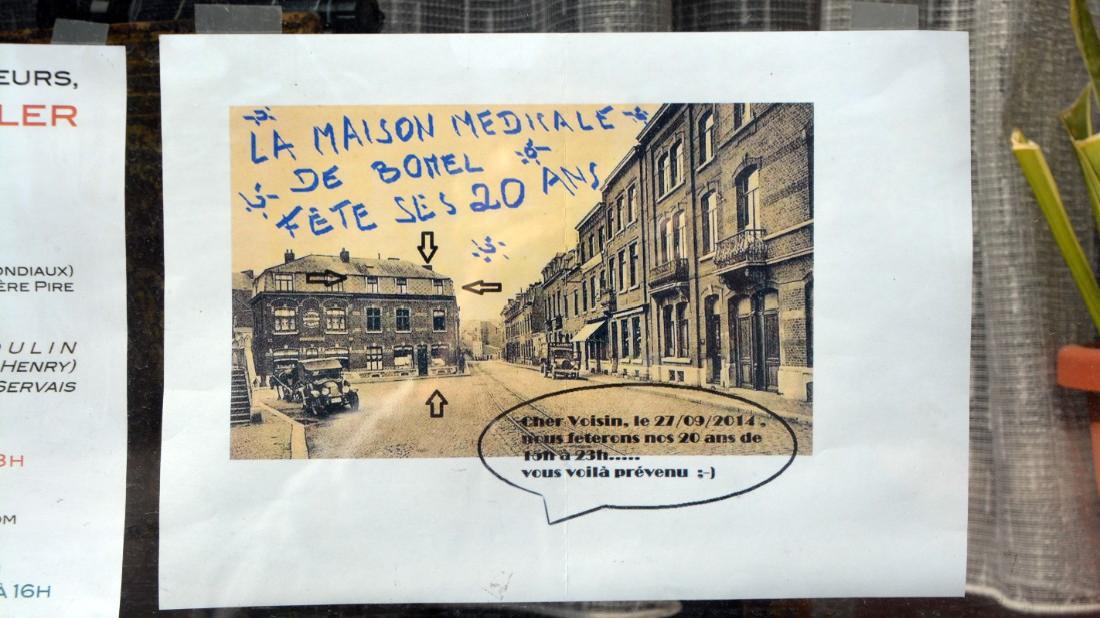 EURS,
LER
ONDIAUX)
ÈRE PIRE
OULIN
HENRY)
SERVAIS
3H
OM
À 16H
LA MAISON MEDICALE
DE BOMEL
FÊTE SES 20 ANS
Cher Voisin, le 27/09/2014 ,
nous feterons nos 20 ans de
15h à 23h.....
vous voilà prévenu ;-)